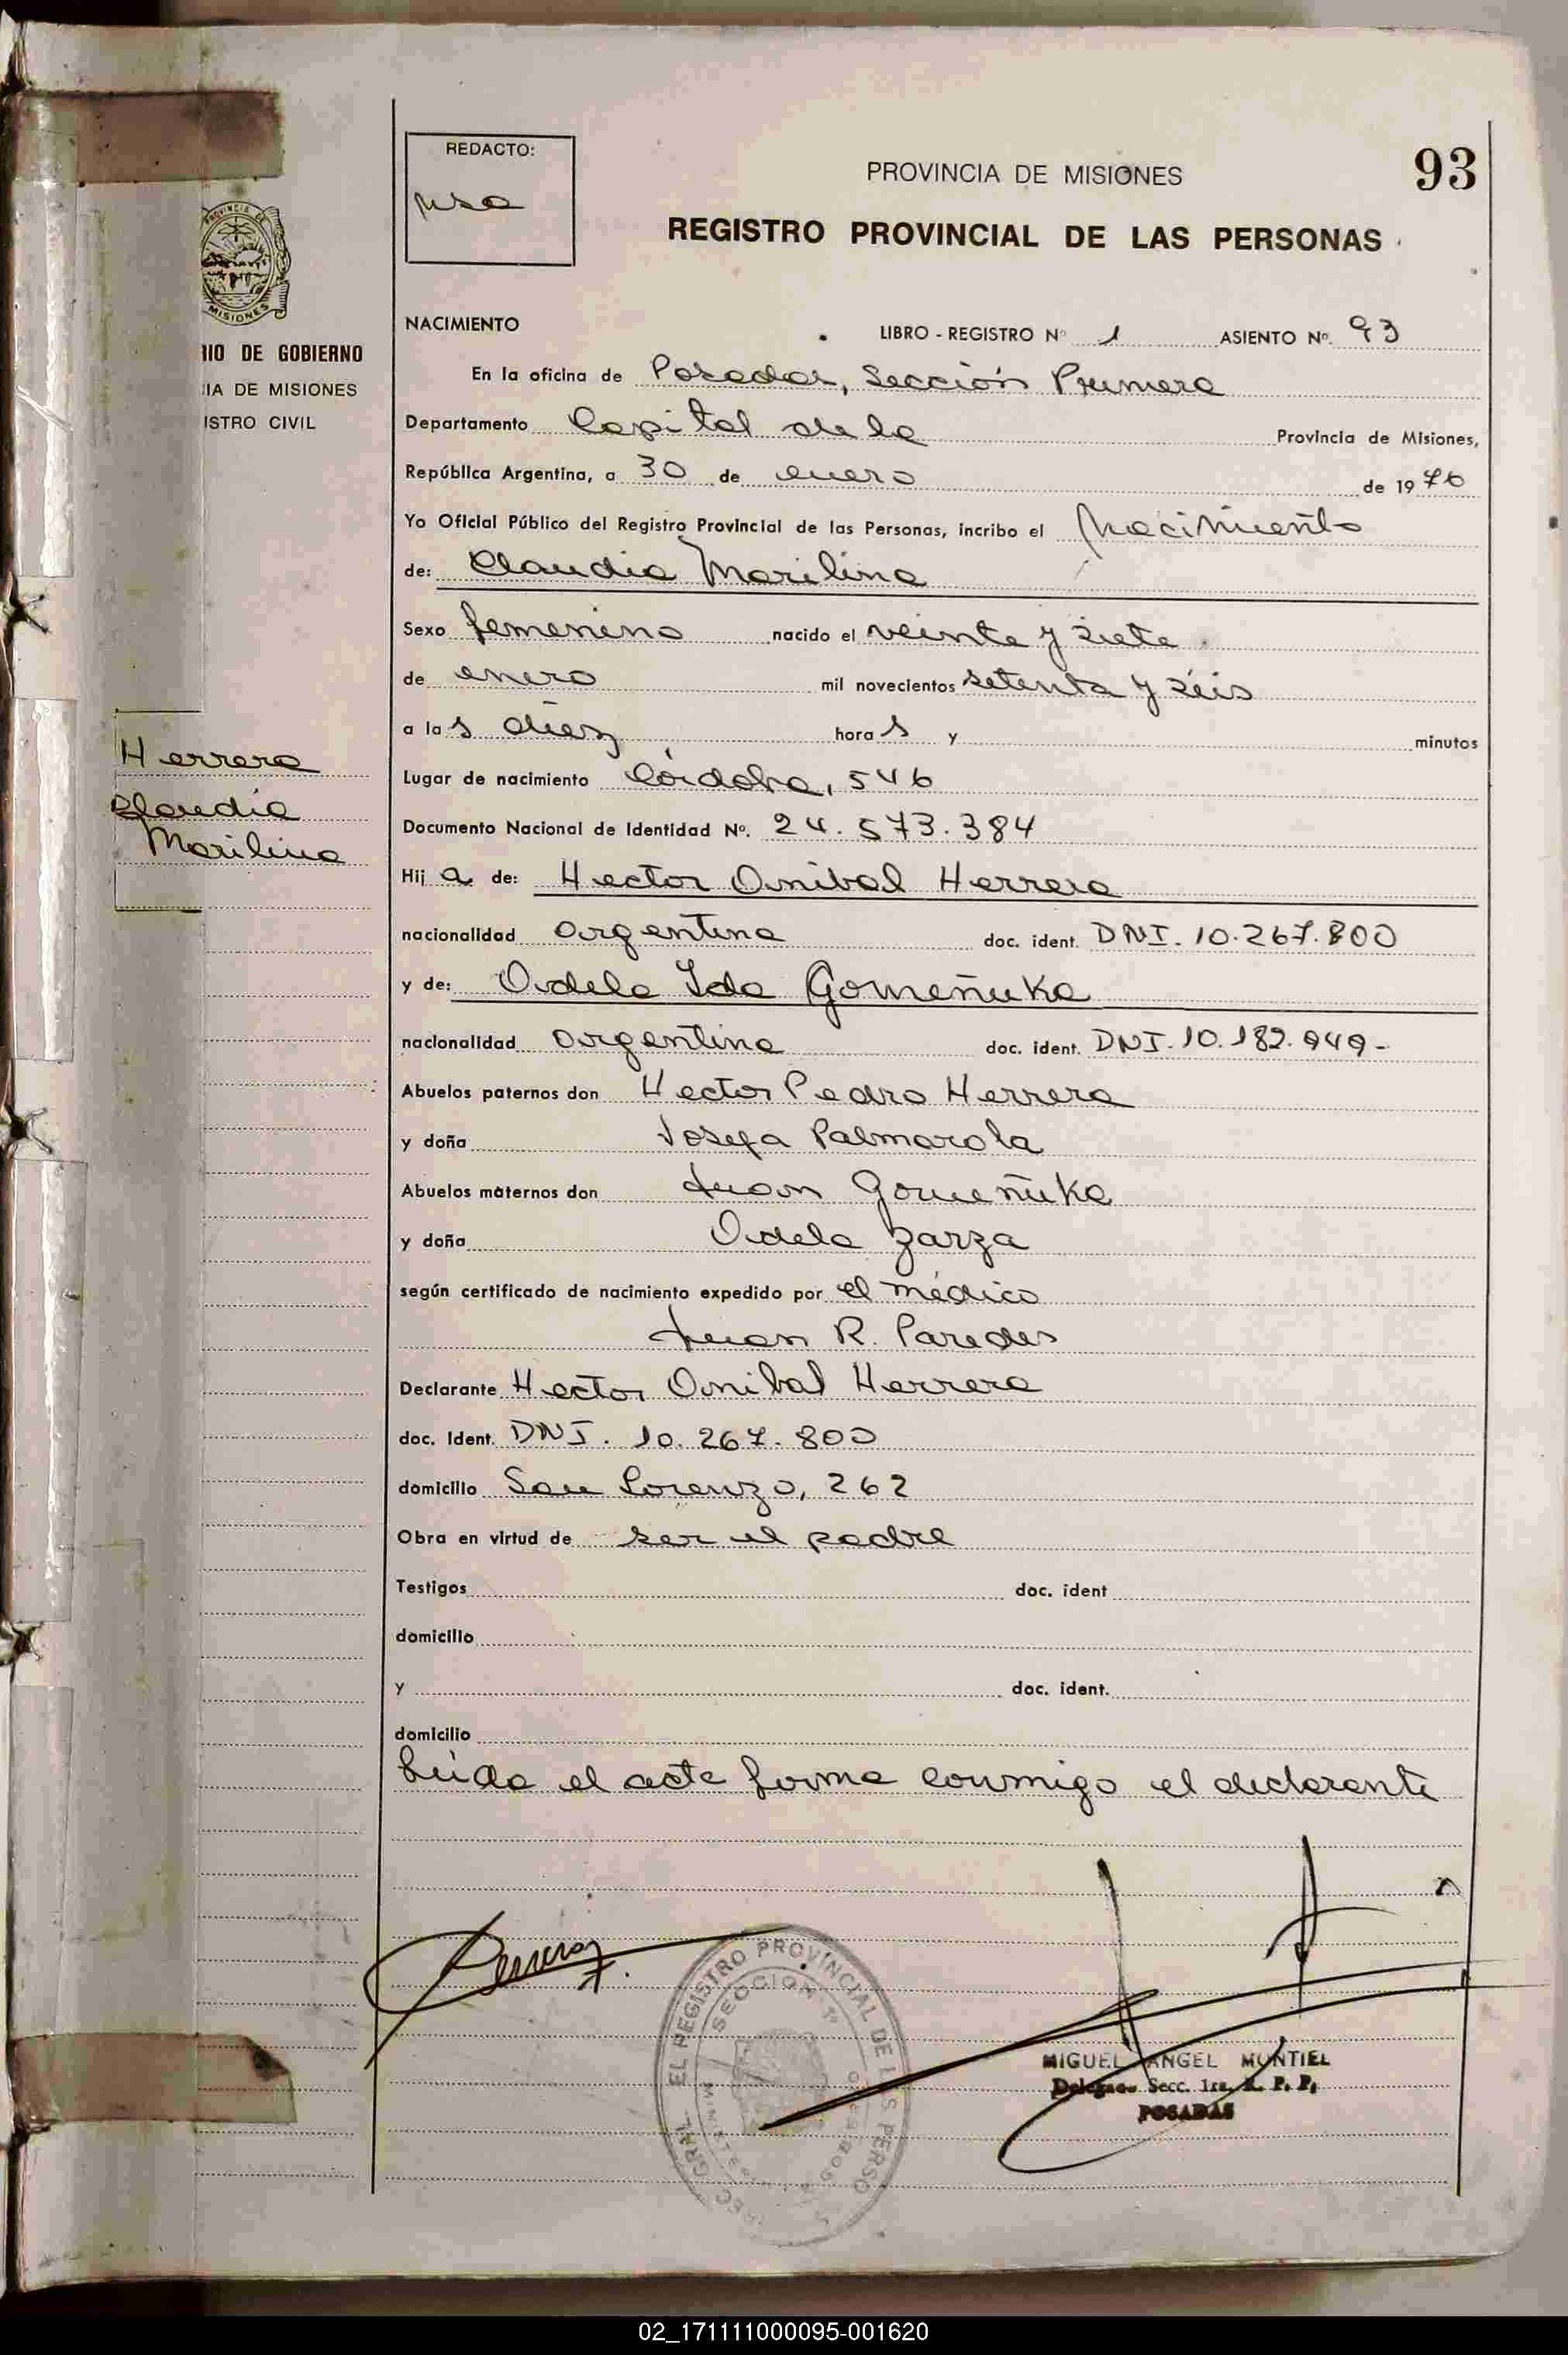 REDACTO:
PROVINCIA DE MISIONES
93
REGISTRO PROVINCIAL DE LAS PERSONAS
MISIONES
IO DE GOBIERNO
IA DE MISIONES
ISTRO CIVIL
NACIMIENTO
LIBRO - REGISTRO Nº 1 ASIENTO Nº. 93
En la oficina de Posadas, Sección Primera
Departamento Capital de la Provincia de Misiones,
República Argentina, a 30 de enero de 1976
Yo Oficial Público del Registro Provincial de las Personas, incribo el Nacimiento
de: Claudia Marilina
Sexo femenino nacido el veinte y siete
de enero mil novecientos setenta y séis
a las diez horas y minutos
Herrera
Claudia
Marilina
Lugar de nacimiento Córdoba, 546
Documento Nacional de Identidad Nº. 24.573.384
Hija de: Hector Anibal Herrera
nacionalidad argentina doc. ident. DNI. 10.267.800
y de: Adela Ida Gomeñuka
nacionalidad argentina doc. ident. DNI. 10.182.949-
Abuelos paternos don Hector Pedro Herrera
y doña Josefa Palmarola
Abuelos maternos don Juan Gomeñuka
y doña Adela Zarza
según certificado de nacimiento expedido por el médico
Juan R. Paredes
Declarante Hector Anibal Herrera
doc. Ident. DNI. 10.267.800
domicilio San Lorenzo, 262
Obra en virtud de ser el padre
Testigos doc. ident
domicilio
y doc. ident.
domicilio
Leída el acta firma conmigo el declarante
EL REGISTRO PROVINCIAL DE LAS PERSO
SECCION 1ª
MIGUEL ANGEL MONTIEL
Delegado Secc. 1ra. R. P. P.
POSADAS
02_171111000095-001620